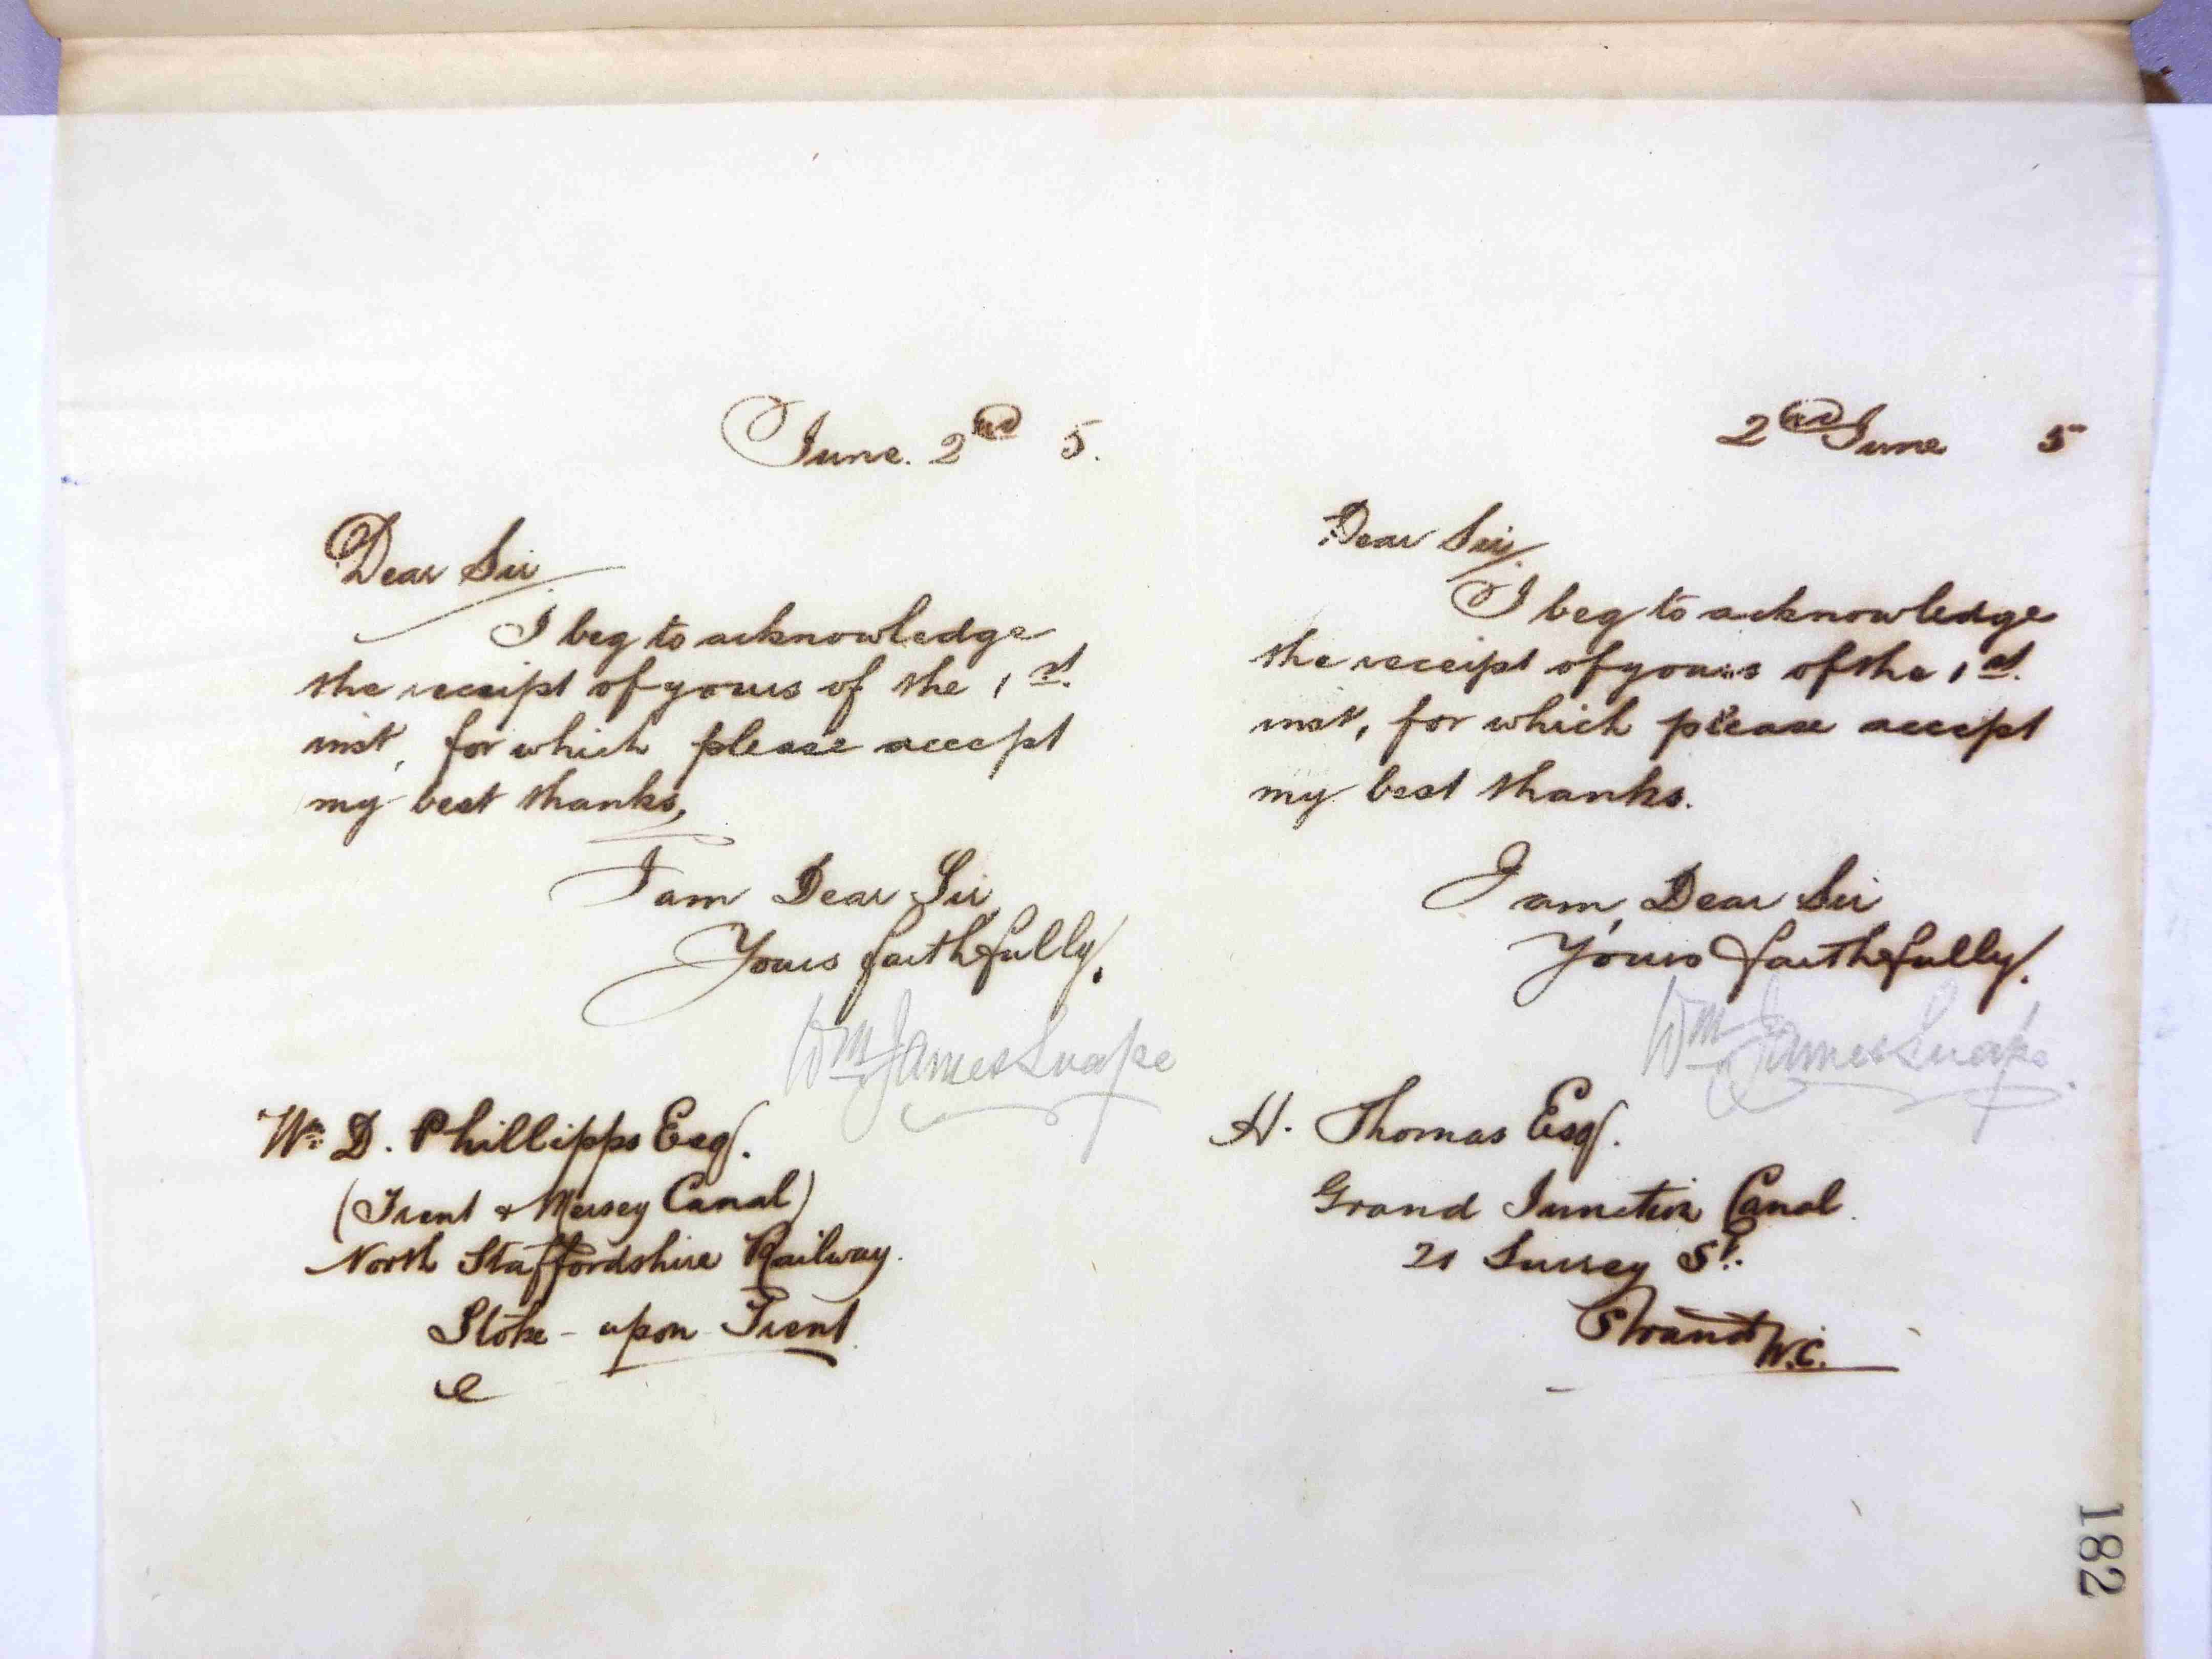 June. 2nd 5.
Dear Sir
I beg to acknowledge
the receipt of yours of the 1st.
inst, for which please accept
my best thanks,
I am Dear Sir
Yours faithfully.
Wm James Snape
Wm. D. Phillipps Esq.
(Trent & Mersey Canal)
North Staffordshire Railway.
Stoke - upon Trent.
2nd June 5
Dear Sir,
I beg to acknowledge
the receipt of yours of the 1st.
inst, for which please accept
my best thanks.
I am, Dear Sir
Yours faithfully.
Wm James Snape.
H. Thomas Esq.
Grand Junction Canal.
21 Surrey St.
Strand W.C.
182